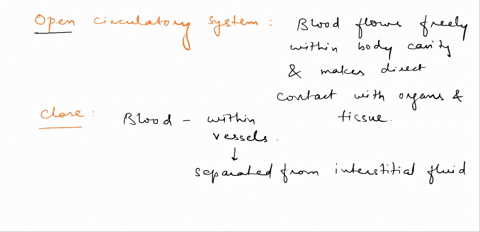 Open circulatory system : Blood flows freely
within body cavity
& makes direct
contact with organs &
tissue.
Close : Blood - within
vessels.
↓
separated from interstitial fluid